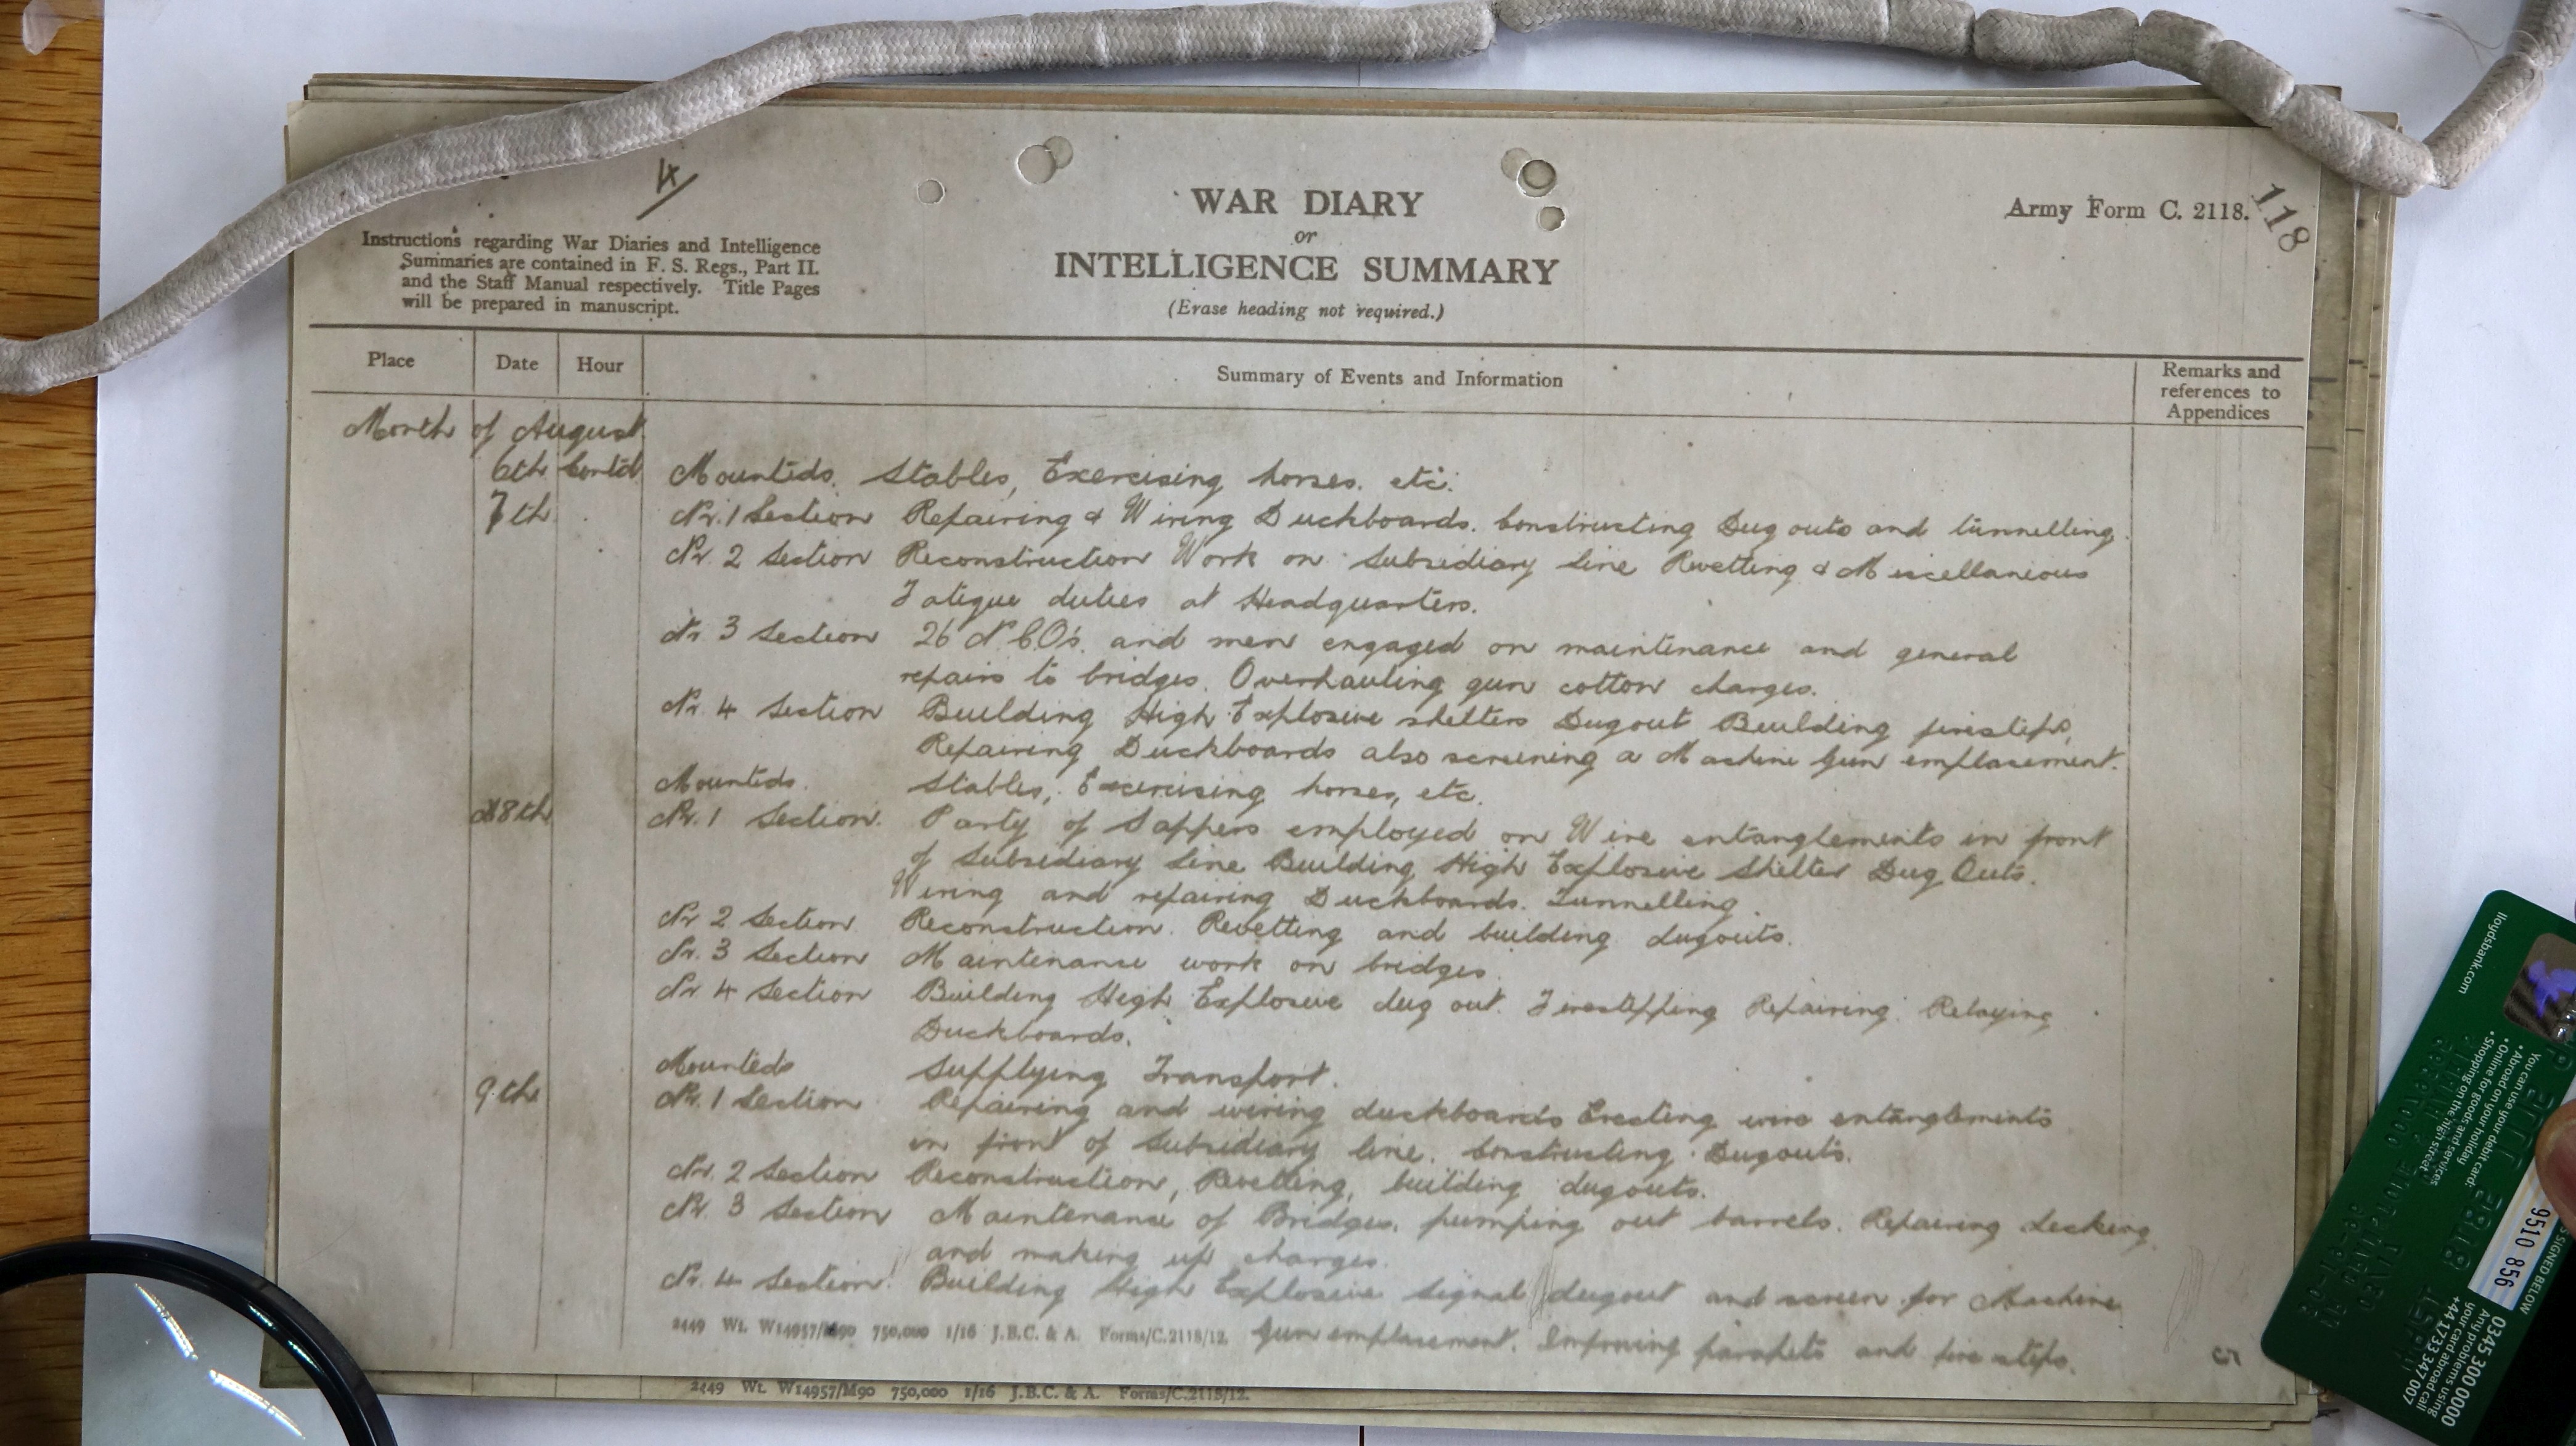 4
118
WAR DIARY
or
INTELLIGENCE SUMMARY
(Erase heading not required.)
Army Form C. 2118.
Instructions regarding War Diaries and Intelligence
Summaries are contained in F. S. Regs., Part II.
and the Staff Manual respectively. Title Pages
will be prepared in manuscript.
Place Date Hour Summary of Events and Information Remarks and references to Appendices
Month of August
6th Contd Mounteds. Stables, Exercising horses. etc.
7th Nr. 1 Section Repairing & Wiring Duckboards. Constructing Dug outs and tunnelling.
Nr. 2 Section Reconstruction Work on Subsidiary Line Rivetting & Miscellaneous
Fatigue duties at Headquarters.
Nr. 3 Section 26 N.C.O's. and men engaged on maintenance and general
repairs to bridges. Overhauling gun cotton charges.
Nr. 4 Section Building High Explosive shelters Dugout Building firesteps,
Repairing Duckboards also screening a Machine Gun emplacement.
Mounteds. Stables, Exercising horses, etc.
8th Nr. 1 Section. Party of Sappers employed on Wire entanglements in front
of Subsidiary Line Building High Explosive Shelter Dug Outs.
Wiring and repairing Duckboards. Tunnelling.
Nr 2 Section. Reconstruction. Revetting and building dugouts.
Nr. 3 Section Maintenance work on bridges.
Nr 4 Section Building High Explosive dug out. Firestepping Repairing Relaying
Duckboards.
Mounteds Supplying Transport.
9th Nr. 1 Section Repairing and wiring duckboards Erecting wire entanglements
in front of Subsidiary line. Constructing Dugouts.
Nr. 2 Section Reconstruction, Revetting, building dugouts.
Nr. 3 Section Maintenance of Bridges. pumping out barrels. Repairing decking
and making up charges.
Nr. 4 Section. Building High Explosive Signal dugout and screen for Machine
Gun emplacement. Improving parapets and fire steps.
2449 Wt. W14957/M90 750,000 1/16 J.B.C. & A. Forms/C.2118/12.
2449 Wt. W14957/M90 750,000 1/16 J.B.C. & A. Forms/C.2118/12.
lloydsbank.com
You can use your debit card:
• Abroad on your holiday
• Online for goods and services
• Shopping on the high street
SIGNED BELOW
0345 300 0000
Any problems using
your card abroad call
+44 1733 347 007